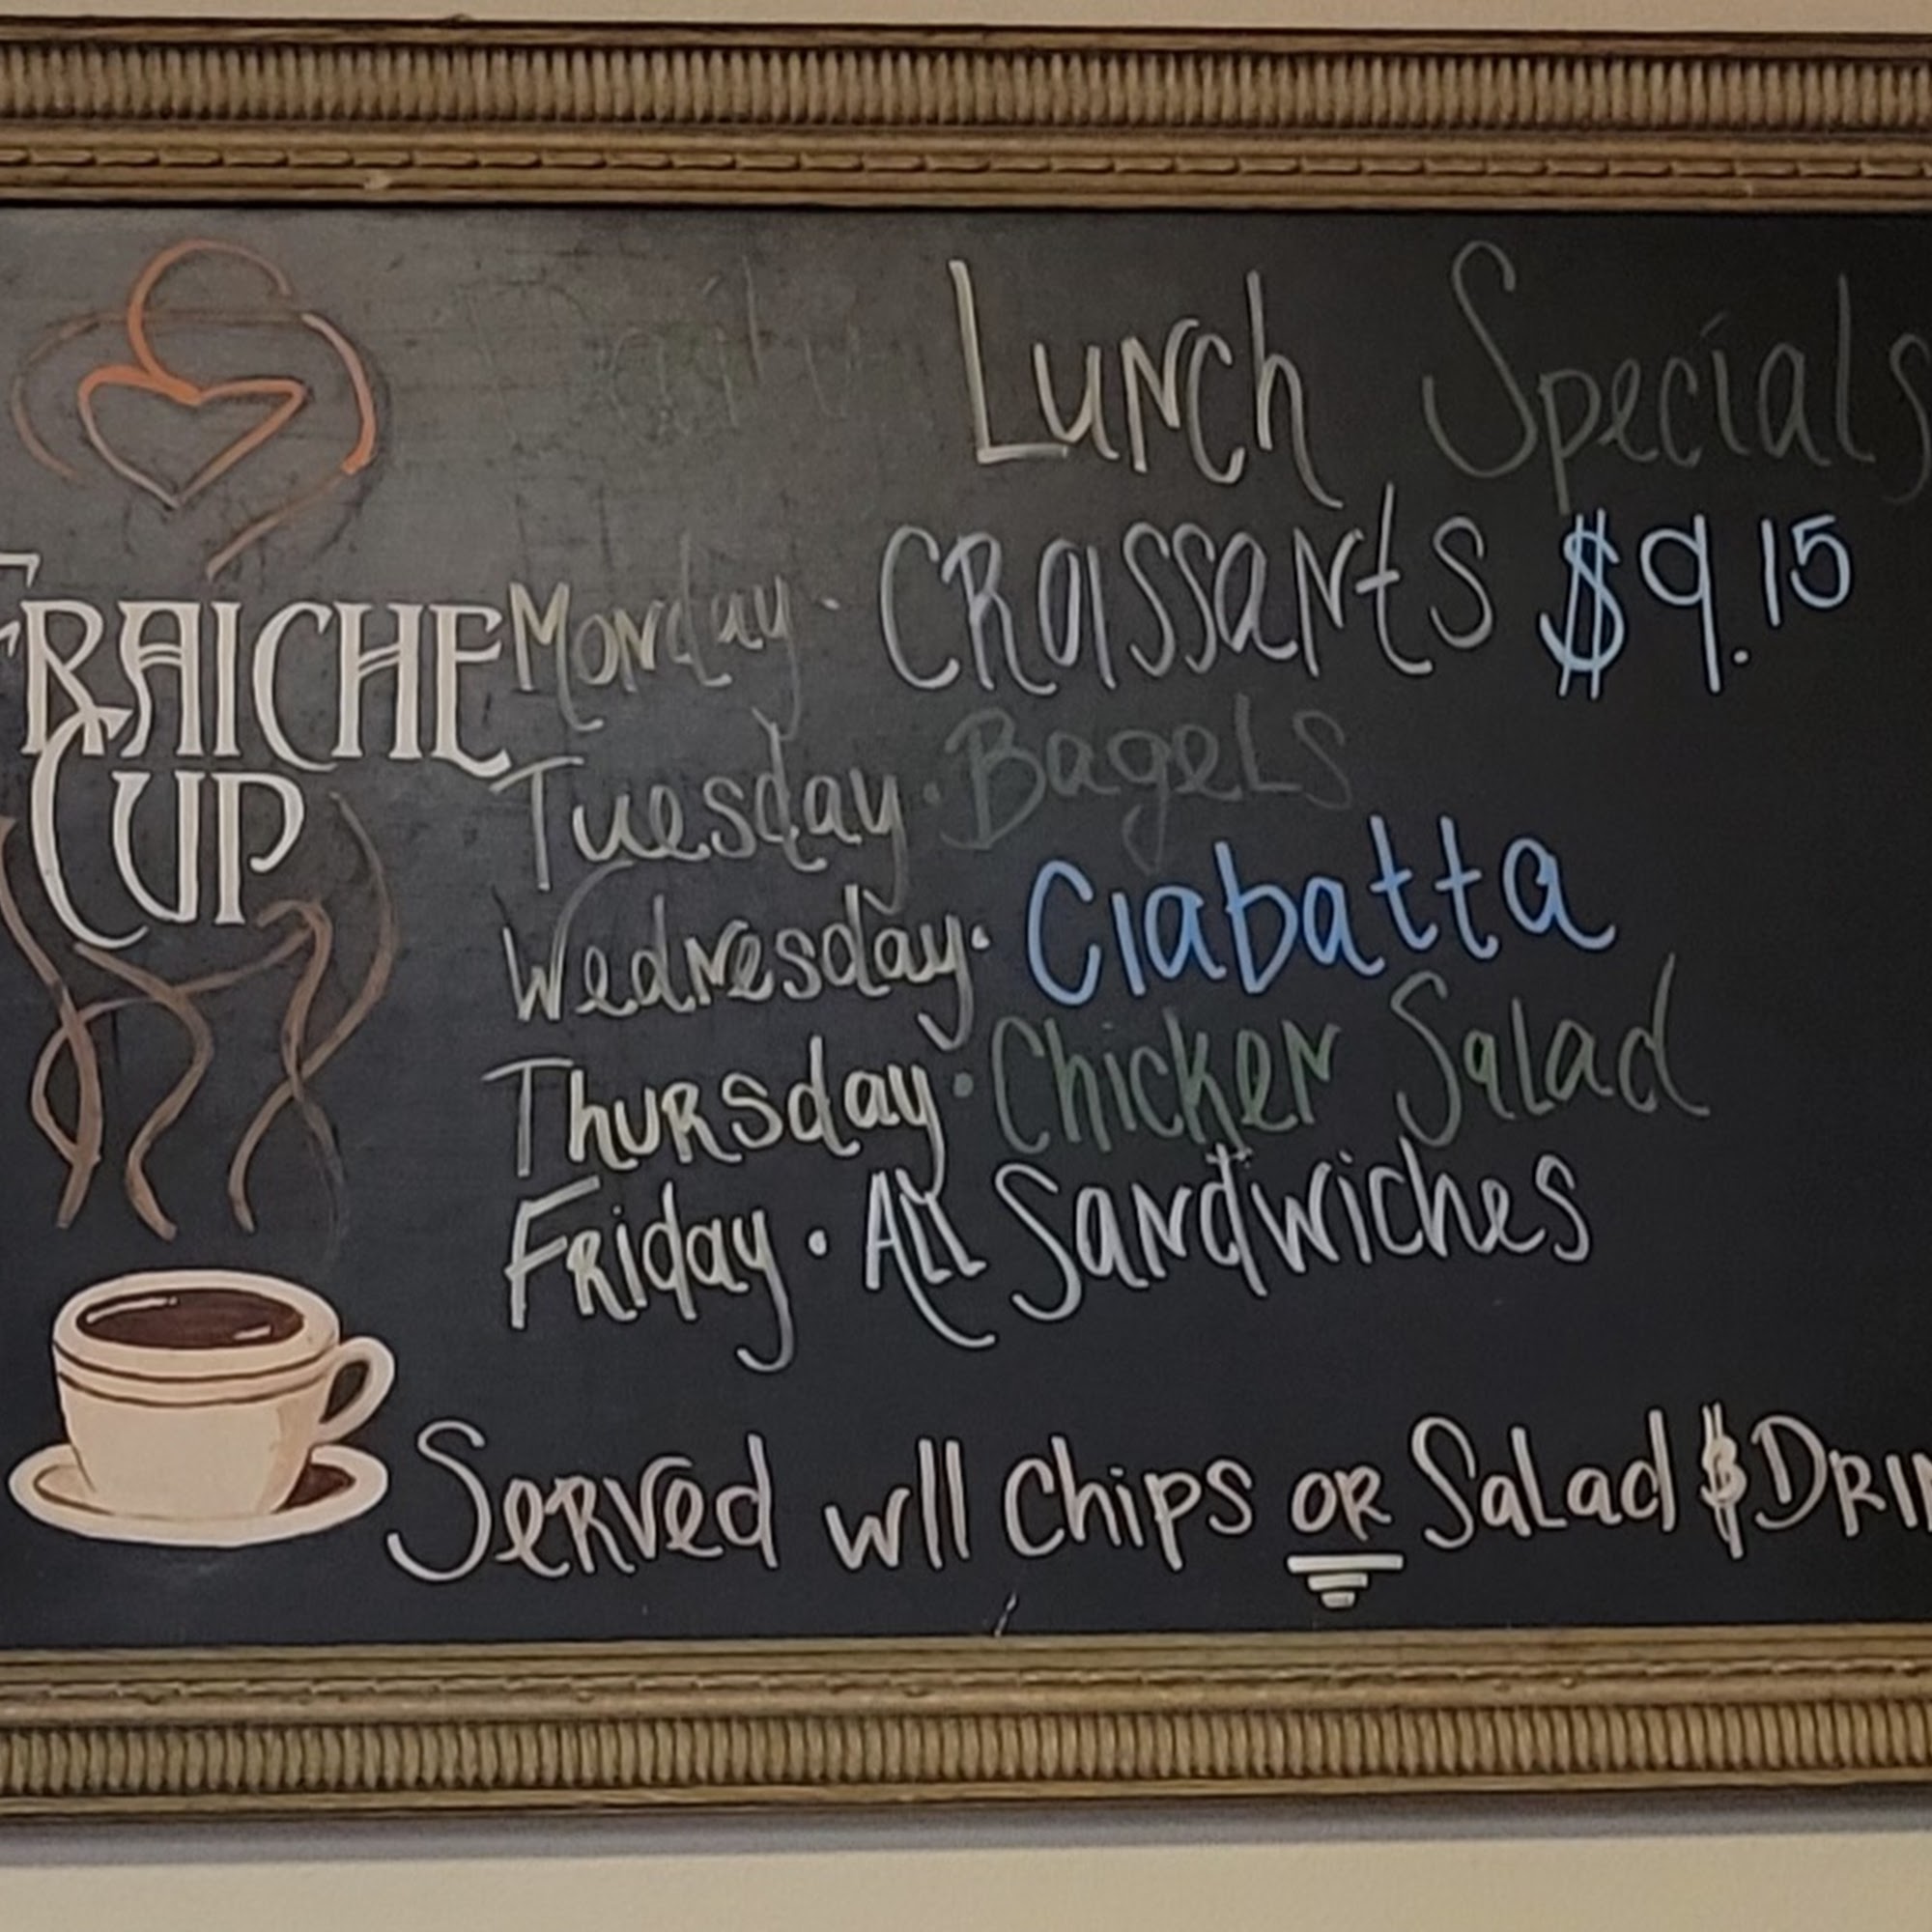 Daily Lunch Specials
FRAICHE
CUP
Monday · CROISSANTS $9.15
Tuesday · Bagels
Wednesday · Ciabatta
Thursday · Chicken Salad
Friday · All Sandwiches
Served w// Chips OR Salad & DRIN